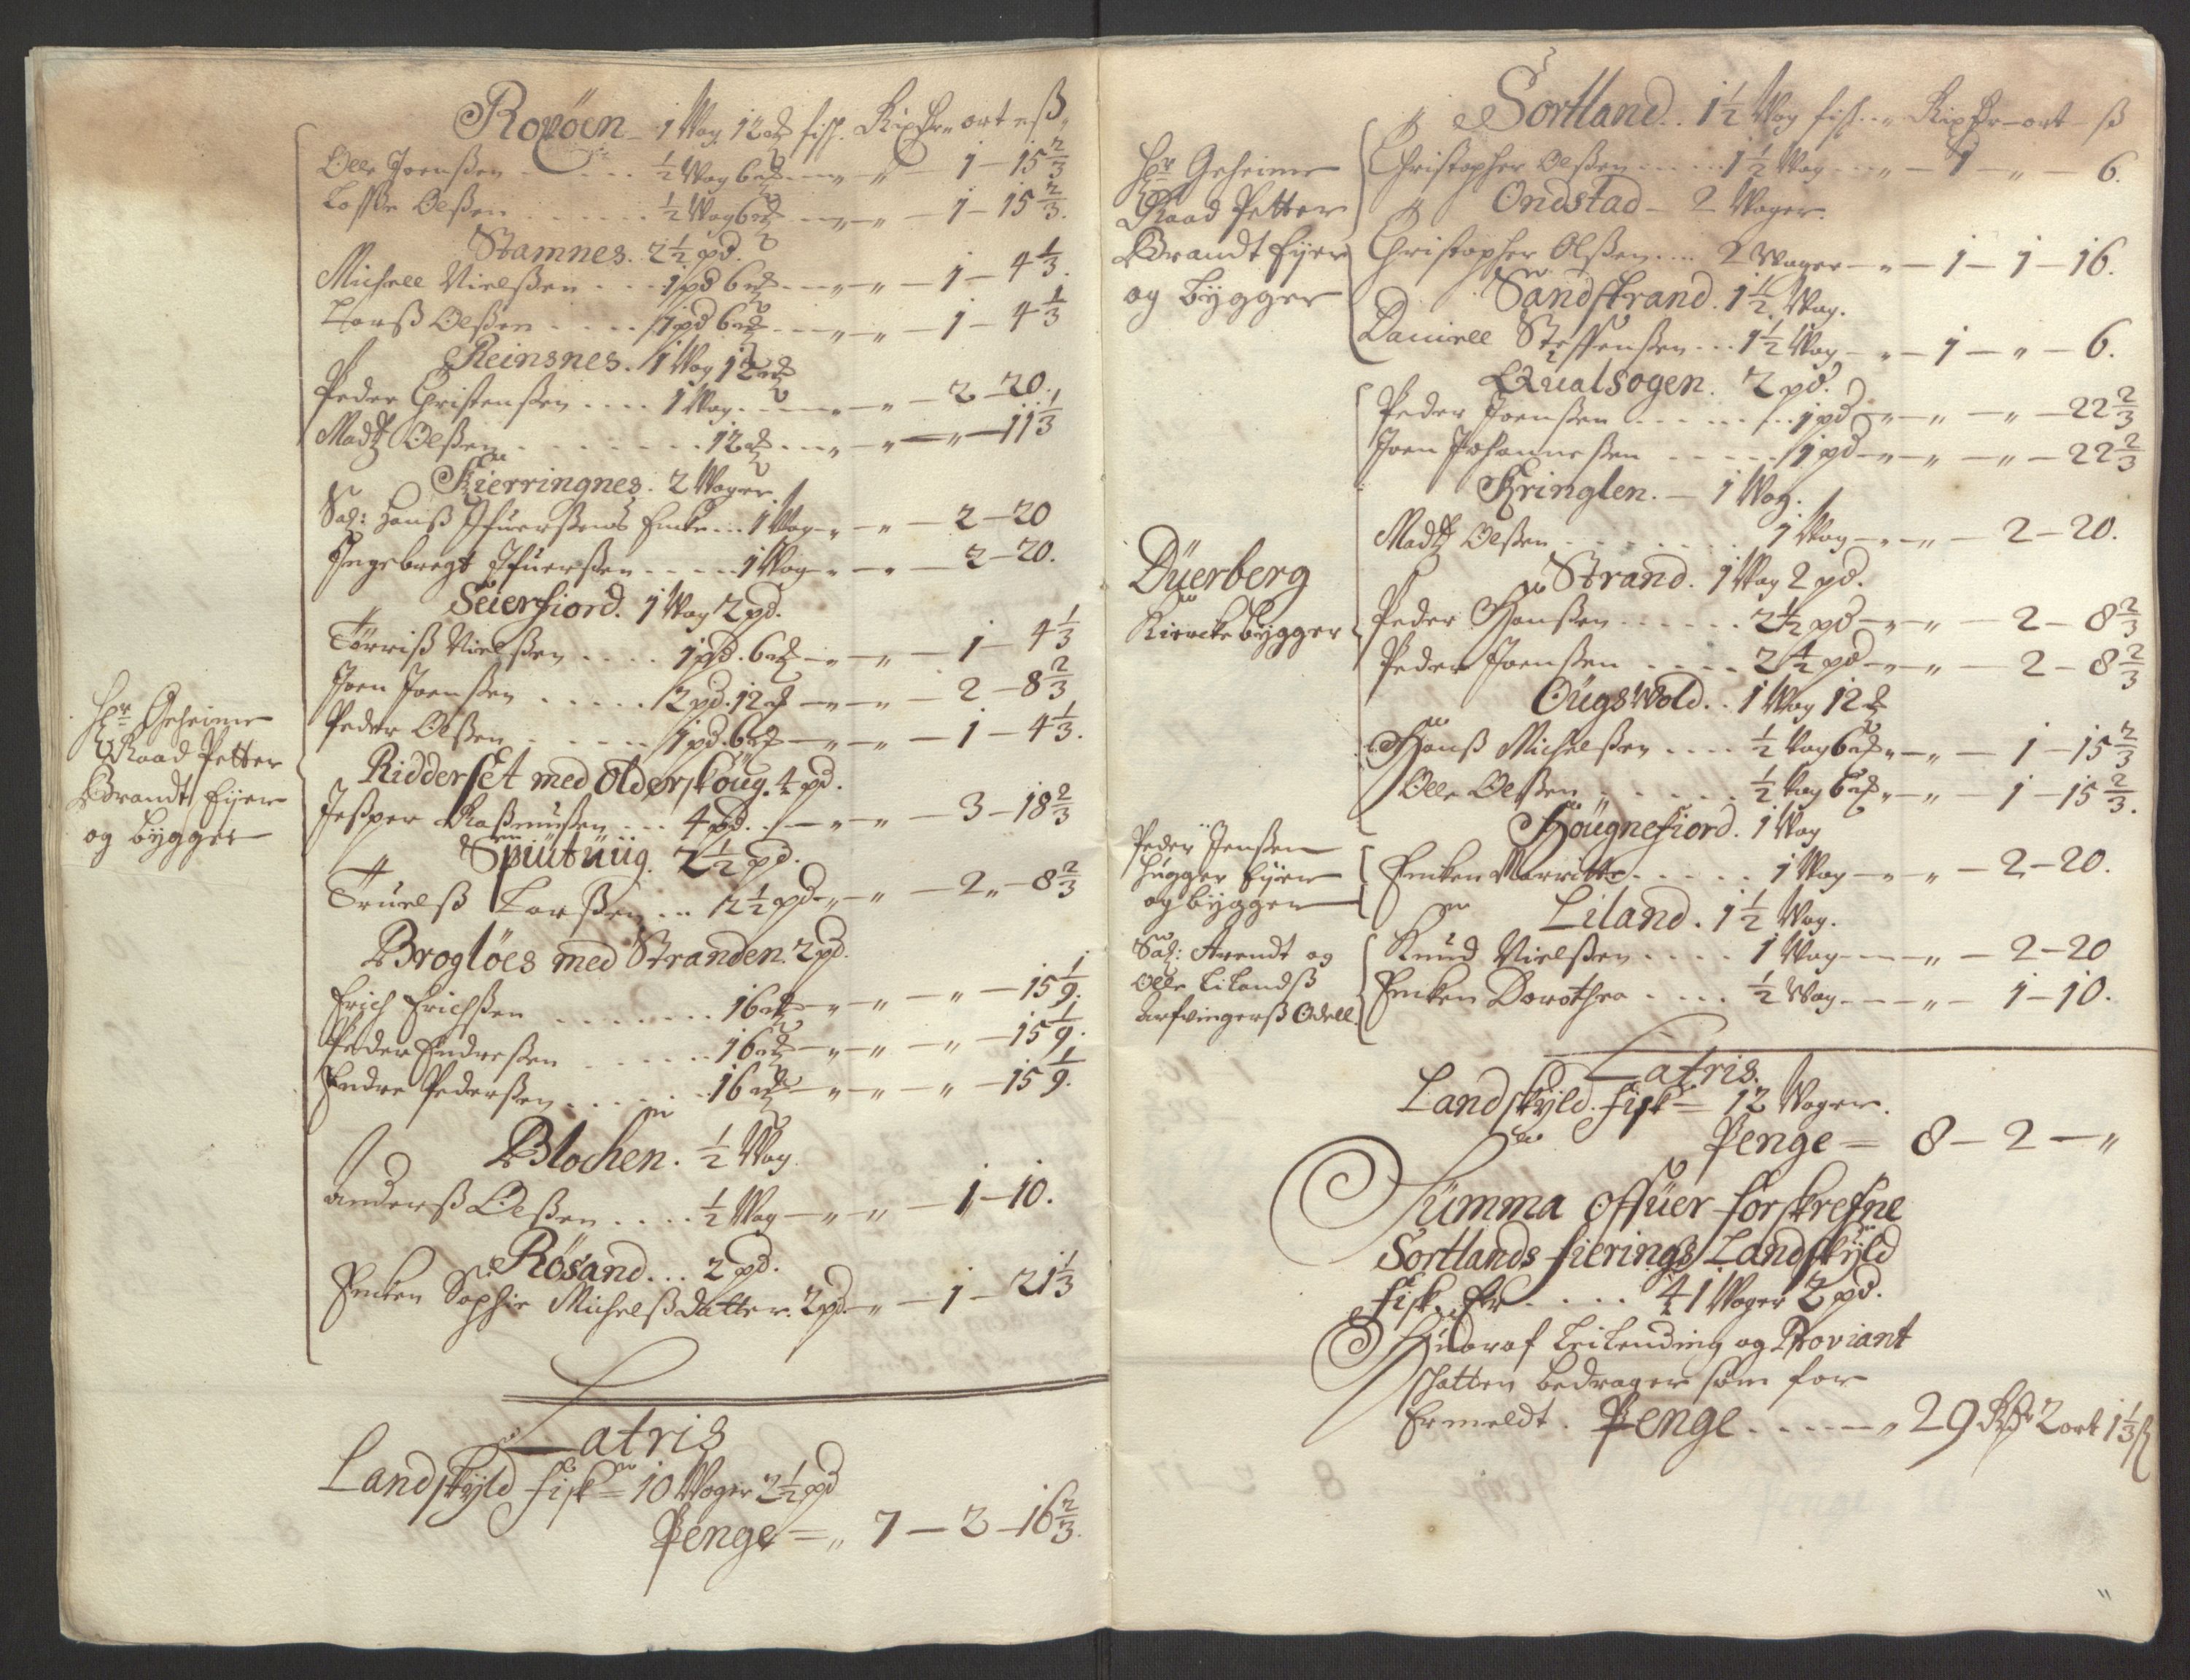 Roxöen 1 Wog 12 fisk. Rixdr ort ß
Olle Joenßen . . . . ½ Wog 6 — „ — „ — 1 — 15⅔
Laße Olßen . . . . ½ Wog 6 — „ — „ — 1 — 15⅔.
Stamnes. 2½ pd.
Michell Nielßen . . . 1 pd 6 — „ — „ — 1 — 4⅓.
Larß Olßen . . . . 1 pd 6 — „ — „ — 1 — 4⅓
Reinsnes. 1 Wog 12
Peder Christenßen . . . . 1 Wog . . — „ — „ — 2 — 20.
Madtz Olßen . . . . . . 12 — „ — „ — „ — 11⅓
Kierringnes. 2 Woger.
Sal: Hanß Ifuerßens Encke . . . 1 Wog — „ — „ — 2 — 20
Ingebregt Ifuerßen . . . . 1 Wog — „ — „ — 2 — 20.
Seierfiord. 1 Wog 2 pd.
Törriß Nielßen . . . . 1 pd. 6 — „ — „ — 1 — 4⅓
Joen Joenßen . . . . . 2 pd. 12 — „ — „ — 2 — 8⅔
Peder Olßen . . . . . 1 pd. 6 — „ — „ — 1 — 4⅓.
Hr Geheime
Raad Petter
Brandt Eyer
og bygger
Ridderset med olderskoug. 4 pd.
Jeßper Raßmußen . . . 4 pd. — „ — „ — 3 — 18⅔
Spiutuüg. 2½ pd.
Truelß Larßen . . . 2½ pd — „ — „ — 2 „ — 8⅔
Broglöes med Stranden. 2 pd.
Erich Erichßen . . . . . . 16 — „ — „ — „ — 15⅑.
Peder Endreßen . . . . . 16 — „ — „ — „ — 15⅑.
Endre Pederßen . . . . . 16 — „ — „ — „ — 15⅑.
Blochen. ½ Wog
Anderß Olßen . . . . ½ Wog — „ — „ — 1 — 10.
Rösand . . . 2 pd.
Encken Sophie Michelß datter. 2 pd — „ — 1 — 21⅓
Latris
Landskyld fisk = 10 Woger 2½ pd
Penge = „ 7 — 2 — 16⅔.
Sortland. 1½ Wog fisk. . „ Rixdr — ort — ß
Hr Geheime
Raad Petter
Brandt Eyer
og bygger
Christopher Olßen . . . . . 1½ Wog . . . „ — 1 — „ — 6.
Ondstad — 2 Woger.
Christopher Olßen . . . . 2 Woger — „ — 1 — 1 — 16.
Sandstrand. 1½ Wog.
Daniell Steffenßen . . . 1½ Wog — „ — 1 — „ — 6.
Qualsogen. 2 pd.
Peder Joenßen . . . . . . 1 pd — „ — „ — „ — 22⅔
Joen Johanneßen . . . . . 1 pd — „ — „ — „ — 22⅔
Kringlen. — 1 Wog.
Madtz Olßen . . . . . . . 1 Wog — „ — „ — 2 — 20.
Düerberg
Kiercke bygger
Strand. 1 Wog 2 pd.
Peder Hanßen . . . . . . 2½ pd — „ — „ — 2 — 8⅔
Peder Joenßen . . . . 2½ pd — „ — „ — 2 — 8⅔
Oügswold. . 1 Wog 12
Hanß Michelßen . . . . ½ Wog 6 „ — „ — 1 — 15⅔
Olle Olßen . . . . . . ½ Wog 6 „ — „ — 1 — 15⅔.
Höügnefiord. 1 Wog
Peder Jenßen
Hugger Eyer
og bygger
Encken Marritte . . . . . 1 Wog — „ — „ — 2 — 20.
Liland. 1½ Wog.
Sal: Arendt og
Olle Lilandß
arfvingerß Odell.
Knud Nielßen . . . . 1 Wog — — „ — 2 — 20
Encken Dorothea . . . . ½ Wog — — „ — 1 — 10.
Latris.
Landskyld. fisk = 12 Woger.
Penge = 8 — 2 — „
Summa offuer forskrefne
Sortlands fierings Landskyld
fisk. Er . . . . . 41 Woger 2 pd.
Huoraf Leilending og Proviant
schatten bedrager som for
Ermeldt. Penge . . . . — „ 29 Rdr 2 ort 1⅓ ß